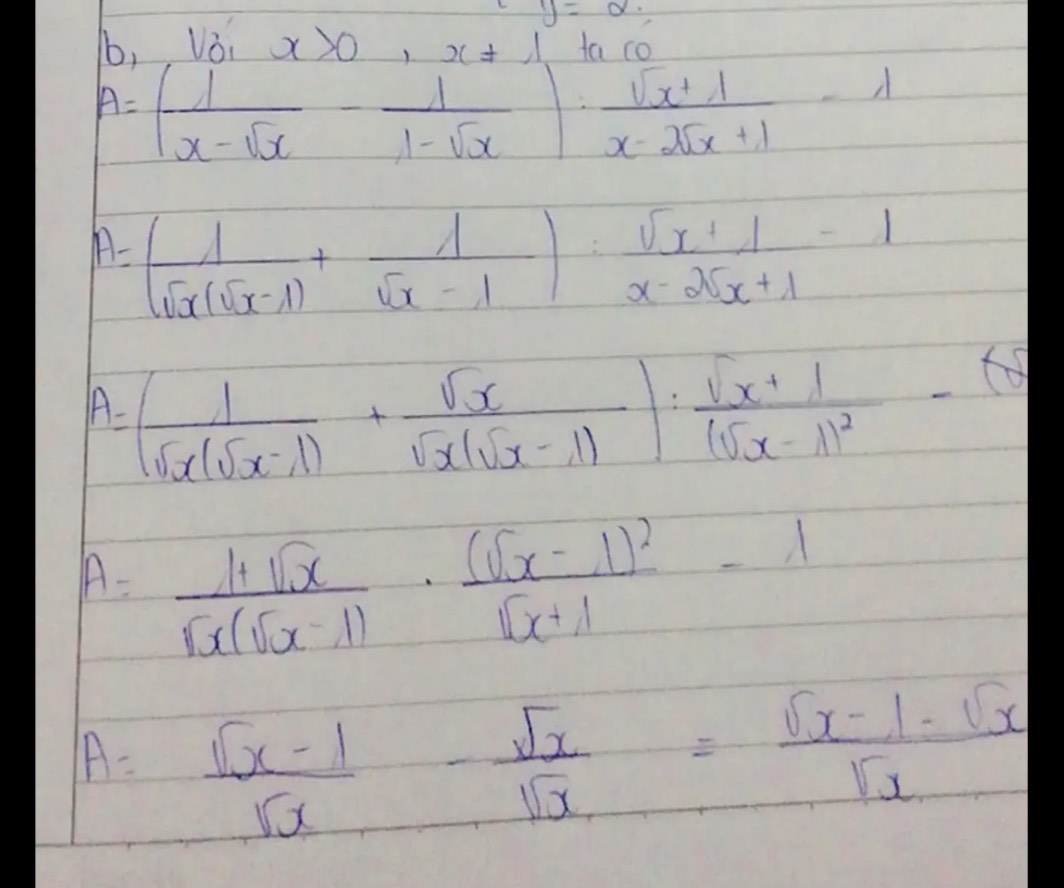 y = 2.
b, Với x > 0 , x ≠ 1 ta có
A = (1/(x - √x) - 1/(1 - √x)) : (√x + 1)/(x - 2√x + 1) - 1
A = (1/(√x(√x - 1)) + 1/(√x - 1)) : (√x + 1)/(x - 2√x + 1) - 1
A = (1/(√x(√x - 1)) + √x/(√x(√x - 1))) : (√x + 1)/(√x - 1)² -
A = (1 + √x)/(√x(√x - 1)) . (√x - 1)²/(√x + 1) - 1
A = (√x - 1)/√x - √x/√x = (√x - 1 - √x)/√x